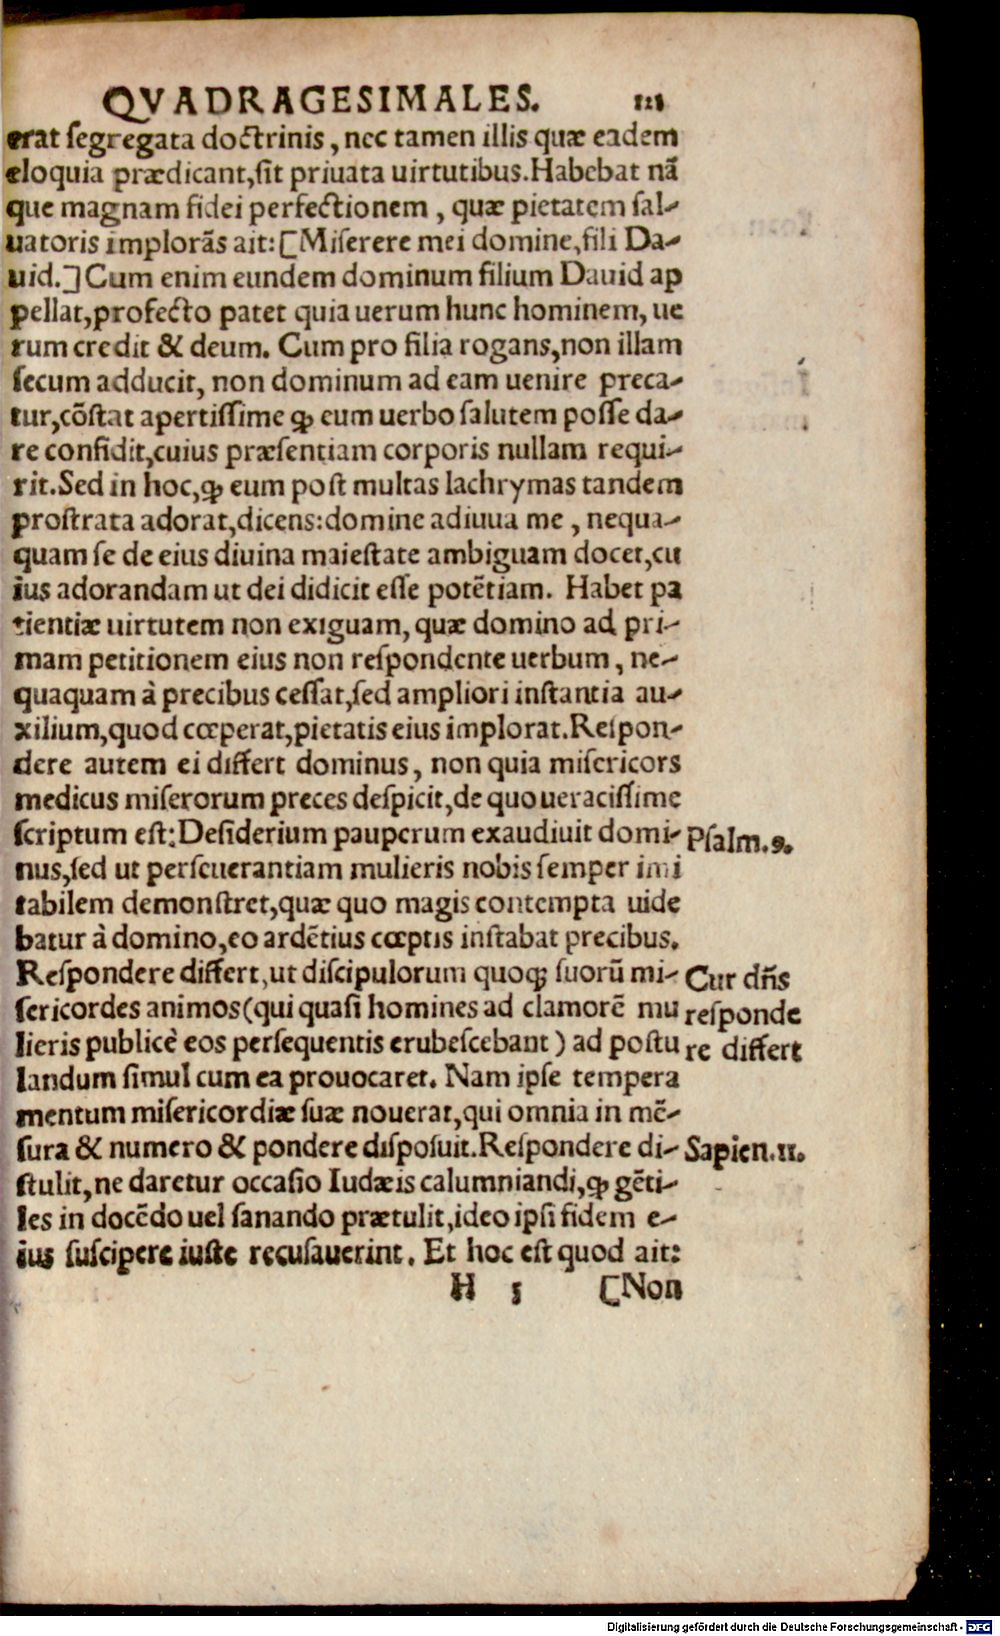 QVADRAGESIMALES. 121
erat segregata doctrinis, nec tamen illis quæ eadem
eloquia prædicant, sit priuata uirtutibus. Habebat nã
que magnam fidei perfectionem, quæ pietatem sal-
uatoris implorãs ait: [Miserere mei domine, fili Da-
uid.] Cum enim eundem dominum filium Dauid ap
pellat, profecto patet quia uerum hunc hominem, ue
rum credit & deum. Cum pro filia rogans, non illam
secum adducit, non dominum ad eam uenire preca-
tur, cõstat apertissime ꝙ eum uerbo salutem posse da-
re confidit, cuius præsentiam corporis nullam requi-
rit. Sed in hoc, ꝙ eum post multas lachrymas tandem
prostrata adorat, dicens: domine adiuua me, nequa-
quam se de eius diuina maiestate ambiguam docet, cu
ius adorandam ut dei didicit esse potẽtiam. Habet pa
tientiæ uirtutem non exiguam, quæ domino ad pri-
mam petitionem eius non respondente uerbum, ne-
quaquam à precibus cessat, sed ampliori instantia au-
xilium, quod cœperat, pietatis eius implorat. Respon-
dere autem ei differt dominus, non quia misericors
medicus miserorum preces despicit, de quo ueracissime
scriptum est: Desiderium pauperum exaudiuit domi- Psalm.9.
nus, sed ut perseuerantiam mulieris nobis semper imi
tabilem demonstret, quæ quo magis contempta uide
batur à domino, eo ardẽtius cœptis instabat precibus.
Respondere differt, ut discipulorum quoq; suorũ mi- Cur dñs
sericordes animos (qui quasi homines ad clamorẽ mu responde
lieris publicè eos persequentis erubescebant) ad postu re differt
landum simul cum ea prouocaret. Nam ipse tempera
mentum misericordiæ suæ nouerat, qui omnia in mẽ-
sura & numero & pondere disposuit. Respondere di- Sapien.11.
stulit, ne daretur occasio Iudæis calumniandi, ꝙ gẽti-
les in docẽdo uel sanando prætulit, ideo ipsi fidem e-
ius suscipere iuste recusauerint. Et hoc est quod ait:
H 5 [Non
Digitalisierung gefördert durch die Deutsche Forschungsgemeinschaft - DFG